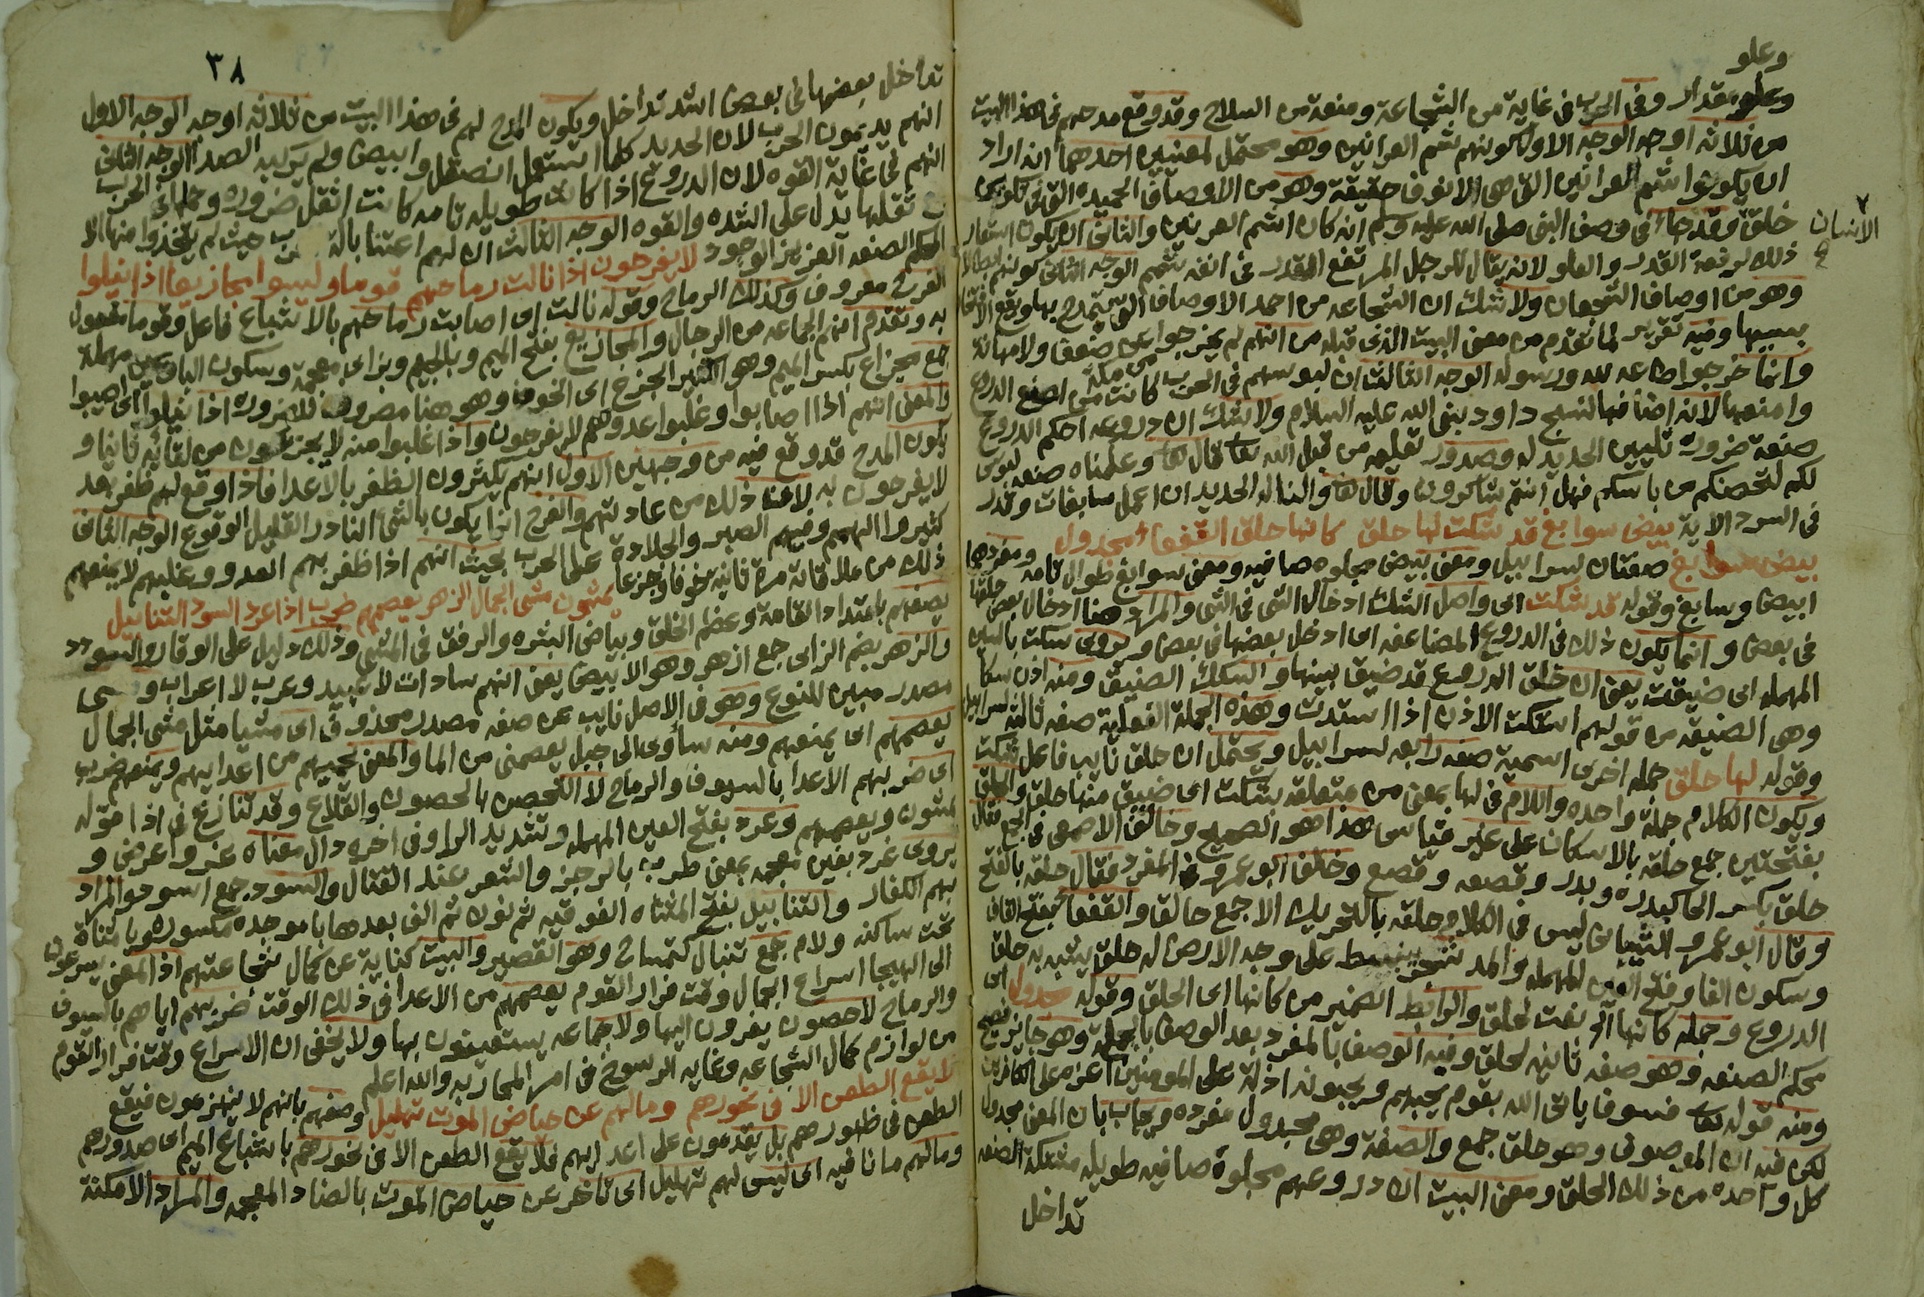 وعلو
وعلو مقدار وفي الحرب في غاية من الشجاعة ومنعة من السلاح وقد وقع مدحهم في هذا البيت
من ثلاثة اوجه الوجه الاول كونهم شم العرانين وهو محتمل لمعنيين احدهما انه اراد
ان يكونوا شم العرانين التي هي الانوف حقيقة وهو من الاوصاف الحميدة التي تكون في
الانسان
خلق وقد جاء في وصف النبي صلى الله عليه وسلم انه كان اشم العرنين والثاني ان يكون استعار
ذلك لرفعة القدر والعلو لانه يقال للرجل المرتفع القدر في انفه شمم الوجه الثاني كونهم ابطالا
وهو من اوصاف الشجعان ولا شك ان الشجاعة من احمد الاوصاف التي يتمدح بها ويقع الافتخار
بسببها وفيه تقرير لما تقدم من معنى البيت الذي قبله من انهم لم يخرجوا من مكة عن ضعف ولا مهانة
وانما خرجوا طاعة لله ورسوله الوجه الثالث ان لبوسهم في الحرب كانت من اصنع الدروع
وامنعها لانه اضافها لنسج داود نبي الله عليه السلام ولا شك ان دروعه احكم الدروع
صنعة ضرورة تليين الحديد له وصدور تعليمه من قبل الله تعالى قال تعالى وعلمناه صنعة لبوس
لكم لتحصنكم من باسكم فهل انتم شاكرون وقال تعالى والنا له الحديد ان اعمل سابغات وقدر
في السرد الاية بيض سوابغ قد شكت لها حلق كانها حلق القفعاء مجدول
بيض سوابغ صفتان لسرابيل ومعنى بيض مجلوه صافيه ومعنى سوابغ طوال تامة ومفردها
ابيض وسابغ وقوله قد شكت اي واصل الشك ادخال الشي في الشي والمراد هنا ادخال بعض حلقها
في بعض وانما يكون ذلك في الدروع المضاعفه اي ادخل بعضها في بعض ويروى سكت بالسين
المهمله اي ضيقت يعني ان حلق الدروع قد ضيق بينها والسكك الضيق ومنه اذن سكا
وهي الضيقة من قولهم استكت الاذن اذا استدت وهذه الجملة الفعلية صفه ثالثة لسرابيل
وقوله لها حلق جمله اخرى اسمية صفه رابعه لسرابيل ويحتمل ان حلق نايب فاعل شكت
ويكون الكلام جملة واحده واللام في لها بمعنى من متعلقه بشكت اي ضيق منها حلق والحلق
بفتحتين جمع حلقه بالاسكان على غير قياس هذا هو الصحيح وخالف الاصمعي في الجمع فقال
حلق بكسر الحا كبدره وبدر وقصعه وقصع وخالف ابو عمرو في المفرد فقال حلقه بالفتح
وقال ابو عمرو الشيباني ليس في الكلام حلقه بالتحريك الا جمع حالق والقفعا بفتح القاف
وسكون الفا وفتح العين المهمله والمد شجر ينبسط على وجه الارض له حلق يشبه به حلق
الدروع وجمله كانها الخ نعت لحلق والرابط الضمير من كانها اي الحلق وقوله مجدول اي
محكم الصنعه وهو صفه ثانيه لحلق وفيه الوصف بالمفرد بعد الوصف بالجملة وهو جايز فصيح
ومنه قوله تعالى فسوف ياتي الله بقوم يحبهم ويحبونه اذلة على المومنين اعزه على الكافرين
لكن فيه ان الموصوف وهو حلق جمع والصفة وهي مجدول مفرده ويجاب بان المعنى مجدول
كل واحده من ذلك الحلق ومعنى البيت ان دروعهم مجلوة صافيه طويله مشبكه الصنعه
تداخل
٣٨
تداخل بعضها في بعض اشد تداخل ويكون المدح لهم في هذا البيت من ثلاثة اوجه الوجه الاول
انهم يديمون الحرب لان الحديد كلما استعمل انصقل وابيض ولم يركبه الصدا الوجه الثاني
انهم في غاية القوه لان الدروع اذا كانت طويله تامه كانت اثقل ضرورة وحملها في الحرب
مع ثقلها يدل على الشده والقوه الوجه الثالث ان لهم اعتنا بالة الحرب حيث لم يتخذوا منها الا
المحكم الصنعه العزيز الوجود لا يفرحون اذا نالت رماحهم قوما وليسوا مجازيعا اذا نيلوا
الفرح معروف وكذلك الرماح وقوله نالت اي اصابت رماحهم بالاشباع فاعل وقوما مفعول
به وتقدم انهم الجماعه من الرجال والمجازيع بفتح الميم وبالجيم وبزاي معجمة وسكون اليا وعين مهملة
جمع مجزاع بكسر الميم وهو الكثير الجزع اي الخوف وهو هنا مصروف للضروره اذا نيلوا اي اصيبوا
والمعنى انهم اذا اصابوا وغلبوا عدوهم لا يفرحون واذا غلبوا منه لا يجزعون من لقائه ثانيا و
يكون المدح قد وقع فيه من وجهين الاول انهم يكثرون الظفر بالاعدا فاذا وقع لهم ظفر بعد
لا يفرحون به لان ذلك من عادتهم والفرح انما يكون بالشي النادر القليل الوقوع الوجه الثاني
كثيروا الهمم وفيهم الصبر والجلادة على الحرب بحيث انهم اذا ظفر بهم العدو وغلبهم لا يمنعهم
ذلك من ملاقاته مرة ثانية خوفا وجزعا يمشون مشي الجمال الزهر يعصمهم ضرب اذا عرد السود التنابيل
يصفهم بامتداد القامة وعظم الخلق وبياض البشره والرفق في المشي وذلك دليل على الوقار والسودد
والزهر بضم الزاي جمع ازهر وهو الابيض يعني انهم سادات لا عبيد وعرب لا اعراب ومشى
مصدر مبين للنوع وهو في الاصل نايب عن صفه مصدر محذوف اي مشيا مثل مشي الجمال
يعصمهم اي يمنعهم ومنه ساوى الى جبل يعصمني من الما والمعنى يحميهم من اعدايهم ويمنعهم ضرب
اي ضربهم الاعدا بالسيوف والرماح لا التحصن بالحصون والقلاع وقد تنازع في اذا قوله
يمشون ويعصمهم وعرد بفتح العين المهمله وتشديد الرا وفي اخره دال معناه فر واعرض و
يروى غرد بغين معجمه بمعنى طرب بالرجز والشعر عند القتال والسود جمع اسود والمراد
بهم الكفار والتنابيل بفتح المثناه الفوقيه ثم نون ثم الف بعدها با موحده مكسورة ويا مثناة
تحت ساكنه ولام جمع تنبال كتمساح وهو القصير والبيت كناية عن كمال شجاعتهم اذ المعنى يسرعون
الى الهيجا اسراع الجمال وقت فرار القوم يعصمهم من الاعدا في ذلك الوقت ضربهم اياهم بالسيوف
والرماح لا حصون يفرون اليها ولا جماعه يستعينون بها ولا يخفى ان الاسراع وقت فرار القوم
من لوازم كمال الشجاعه وغايه الرسوخ في امر المحاربه والله اعلم
لا يقع الطعن الا في نحورهم ومالهم عن حياض الموت تهليل وصفهم بانهم لا ينهزمون فيقع
الطعن في ظهورهم بل يقدمون على اعدايهم فلا يقع الطعن الا في نحورهم باشباع الميم اي صدورهم
ومالهم ما نافيه اي ليس لهم تهليل اي تاخر عن حياض الموت بالضاد المعجمه والمراد الامكنة